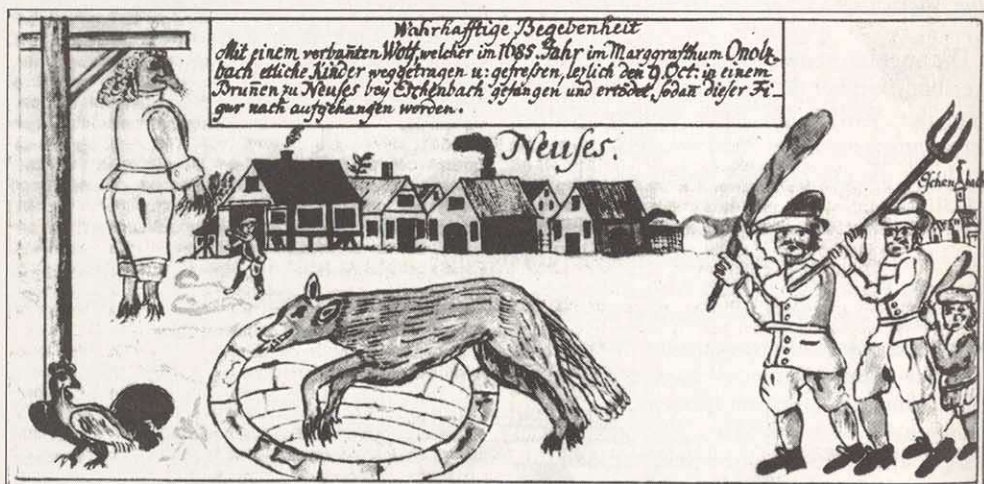 Wahrhafftige Begebenheit
Mit einem verbanten Wolf, welcher im 1685. Jahr im Marggrafthum Onolz-
bach etliche Kinder weggetragen u: gefressen, lezlich den 9. Oct: in einem
Brunen zu Neuses bey Eschenbach gefangen und ertödet, sodan dieser Fi-
gur nach aufgehangen worden.
Neuses.
Eschenbach